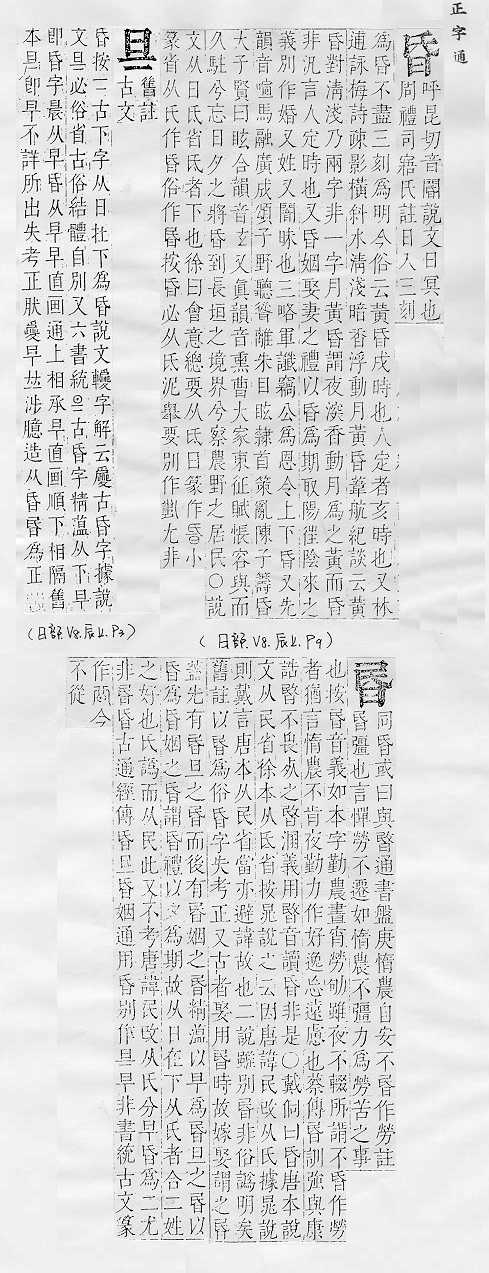 正字通
昏
呼昆切音閽說文日冥也
周禮司寤氏註日入三刻
為昏不盡三刻為明今俗云黃昏戌時也人定者亥時也又林
逋詠梅詩疎影橫斜水清淺暗香浮動月黃昏葦航紀談云黃
昏對清淺乃兩字非一字月黃昏謂夜深香動月為之黃而昏
非汎言人定時也又昏姻娶妻之禮以昏為期取陽徃陰來之
義別作婚又姓又闇昧也三略軍讖竊公為恩令上下昏又先
韻音喧馬融廣成頌子野聽聳離朱目眩隷首策亂陳子籌昏
大子賢曰眩合韻音玄又眞韻音熏曹大家東征賦悵容與而
久駐兮忘日夕之將昏到長垣之境界兮察農野之居民○說
文从日氐省氐者下也徐曰會意總要从氐日篆作昏小
篆省从氏作昏俗作昬按昏必从氐泥舉要別作尤非
舊註
古文
昏按一古下字从日在下為昏說文字解云古昏字據說
文必俗省古俗結體自別又六書統古昏字精蘊从下
即昏字晨从早昏从早直画通上相承早直画順下相隔舊
本即早不詳所出失考正肰早𠀤涉臆造从昏昬為正
(日部 V8.辰上.P3)
(日部 V8.辰上.P9)
昬
同昏或曰與暋通書盤庚惰農自安不昬作勞註
昏彊也言憚勞不遷如惰農不彊力為勞苦之事
也按昏音義如本字勤農晝宵勞劬雖夜不輟所謂不昏作勞
者猶言惰農不肯夜勤力作好逸忘遠慮也蔡傳昏訓強與康
誥暋不畏死之暋溷義用暋音讀昏非是○戴侗曰昏唐本說
文从民省徐本从氐省按晁說之云因唐諱民改从氏據晁說
則戴言唐本从民省當亦避諱故也二說雖別昬非俗譌明矣
舊註以昬為俗昏字失考正又古者娶用昬時故嫁娶謂之昬
蓋先有昬旦之昬而後有昬姻之昬精蘊以早為昬旦之昬以
昏為昏姻之昏謂昏禮以夕為期故从日在下从氏者合二姓
之好也氏譌而从民此又不考唐諱民改从氏分早昏為二尤
非昬昏古通經傳昏旦昏姻通用昏別作早非書統古文篆
作今
不從